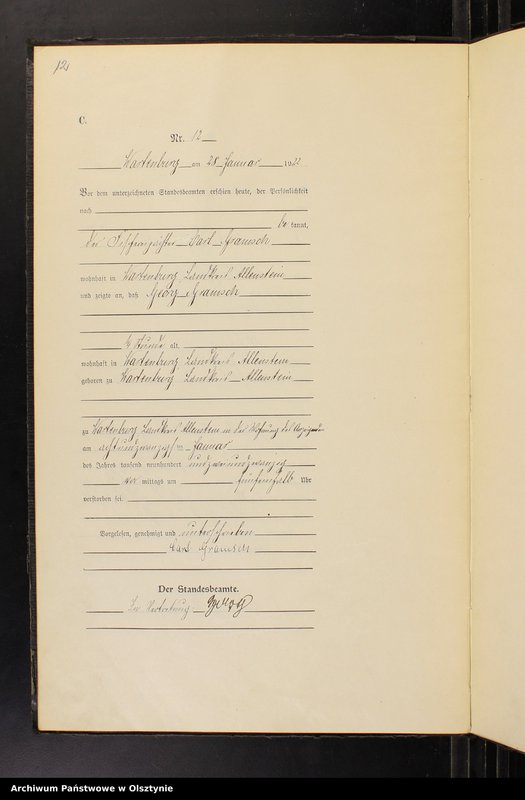 12
C.
Nr. 12
Wartenburg am 28. Januar 1922
Vor dem unterzeichneten Standesbeamten erschien heute, der Persönlichkeit
nach
be kannt,
der Carl Gramsch
wohnhaft in Wartenburg Landkreis Allenstein
und zeigte an, daß Georg Gramsch
½ Stunde alt,
wohnhaft in Wartenburg Landkreis Allenstein
geboren zu Wartenburg Landkreis Allenstein
zu Wartenburg Landkreis Allenstein in der Wohnung des Anzeigenden
am achtundzwanzigsten Januar
des Jahres tausend neunhundert undzweiundzwanzig
vor mittags um fünfeinhalb Uhr
verstorben sei.
Vorgelesen, genehmigt und unterschrieben
Carl Gramsch
Der Standesbeamte.
In Vertretung:
Archiwum Państwowe w Olsztynie